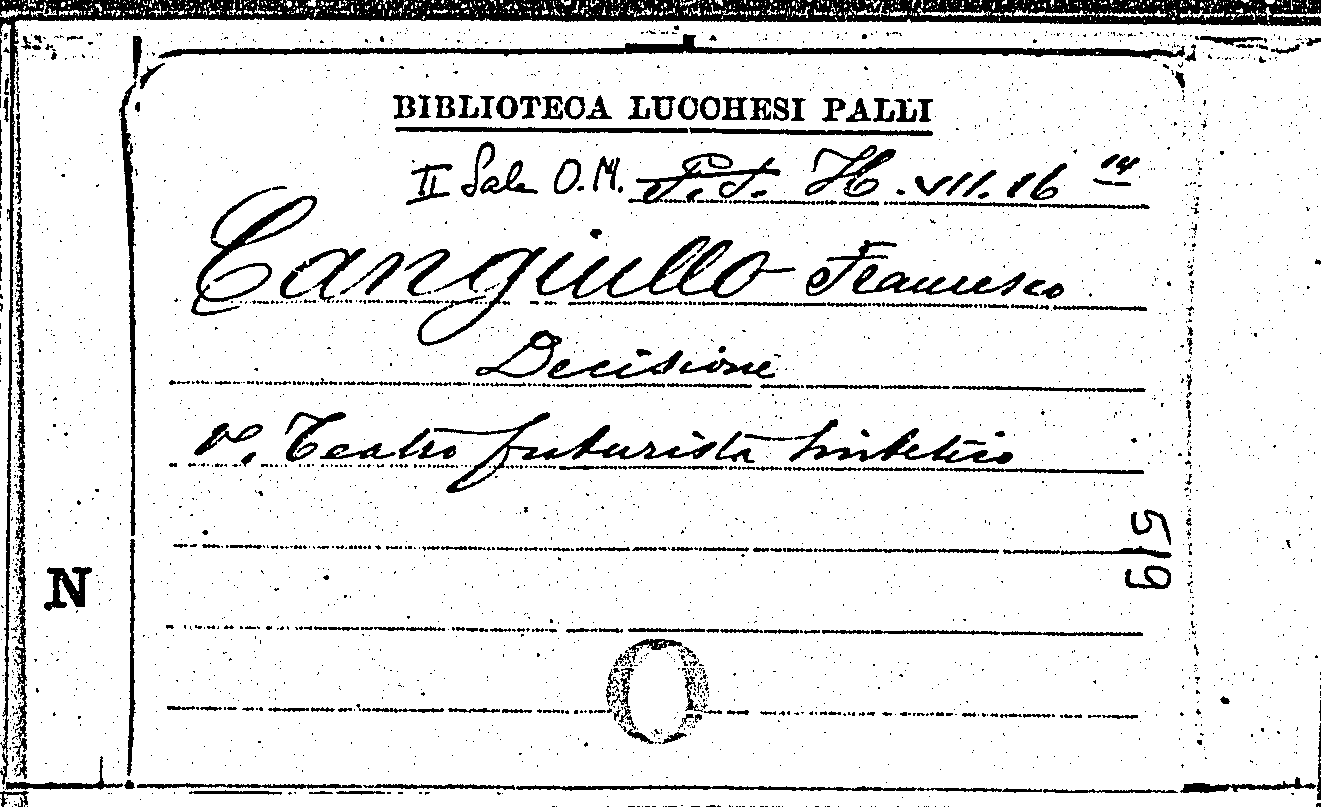 BIBLIOTECA LUCCHESI PALLI
II Sala O.M. F.T. H. VII. 16 14
Cangiullo Francesco
Decisione
v. Teatro futurista sintetico
519
N